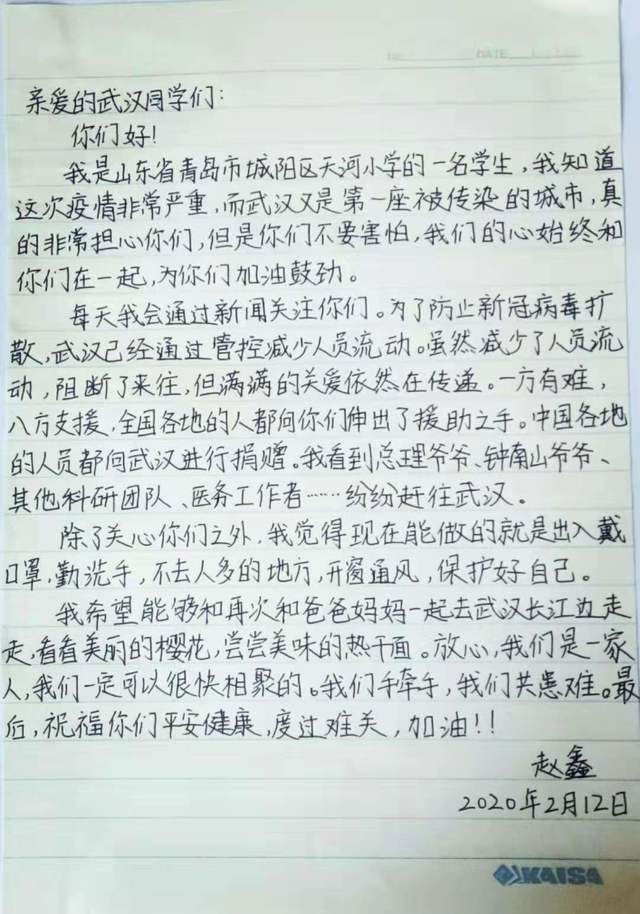 No.
DATE
亲爱的武汉同学们:
你们好!
我是山东省青岛市城阳区天河小学的一名学生,我知道
这次疫情非常严重,而武汉又是第一座被传染的城市,真
的非常担心你们,但是你们不要害怕,我们的心始终和
你们在一起,为你们加油鼓劲。
每天我会通过新闻关注你们。为了防止新冠病毒扩
散,武汉已经通过管控减少人员流动。虽然减少了人员流
动,阻断了来往,但满满的关爱依然在传递。一方有难,
八方支援,全国各地的人都向你们伸出了援助之手。中国各地
的人员都向武汉进行捐赠。我看到总理爷爷、钟南山爷爷、
其他科研团队、医务工作者……纷纷赶往武汉。
除了关心你们之外,我觉得现在能做的就是出入戴
口罩,勤洗手,不去人多的地方,开窗通风,保护好自己。
我希望能够和再次和爸爸妈妈一起去武汉长江边走
走,看看美丽的樱花,尝尝美味的热干面。放心,我们是一家
人,我们一定可以很快相聚的。我们手牵手,我们共患难。最
后,祝福你们平安健康,度过难关,加油!!
赵鑫
2020年2月12日
KAISA